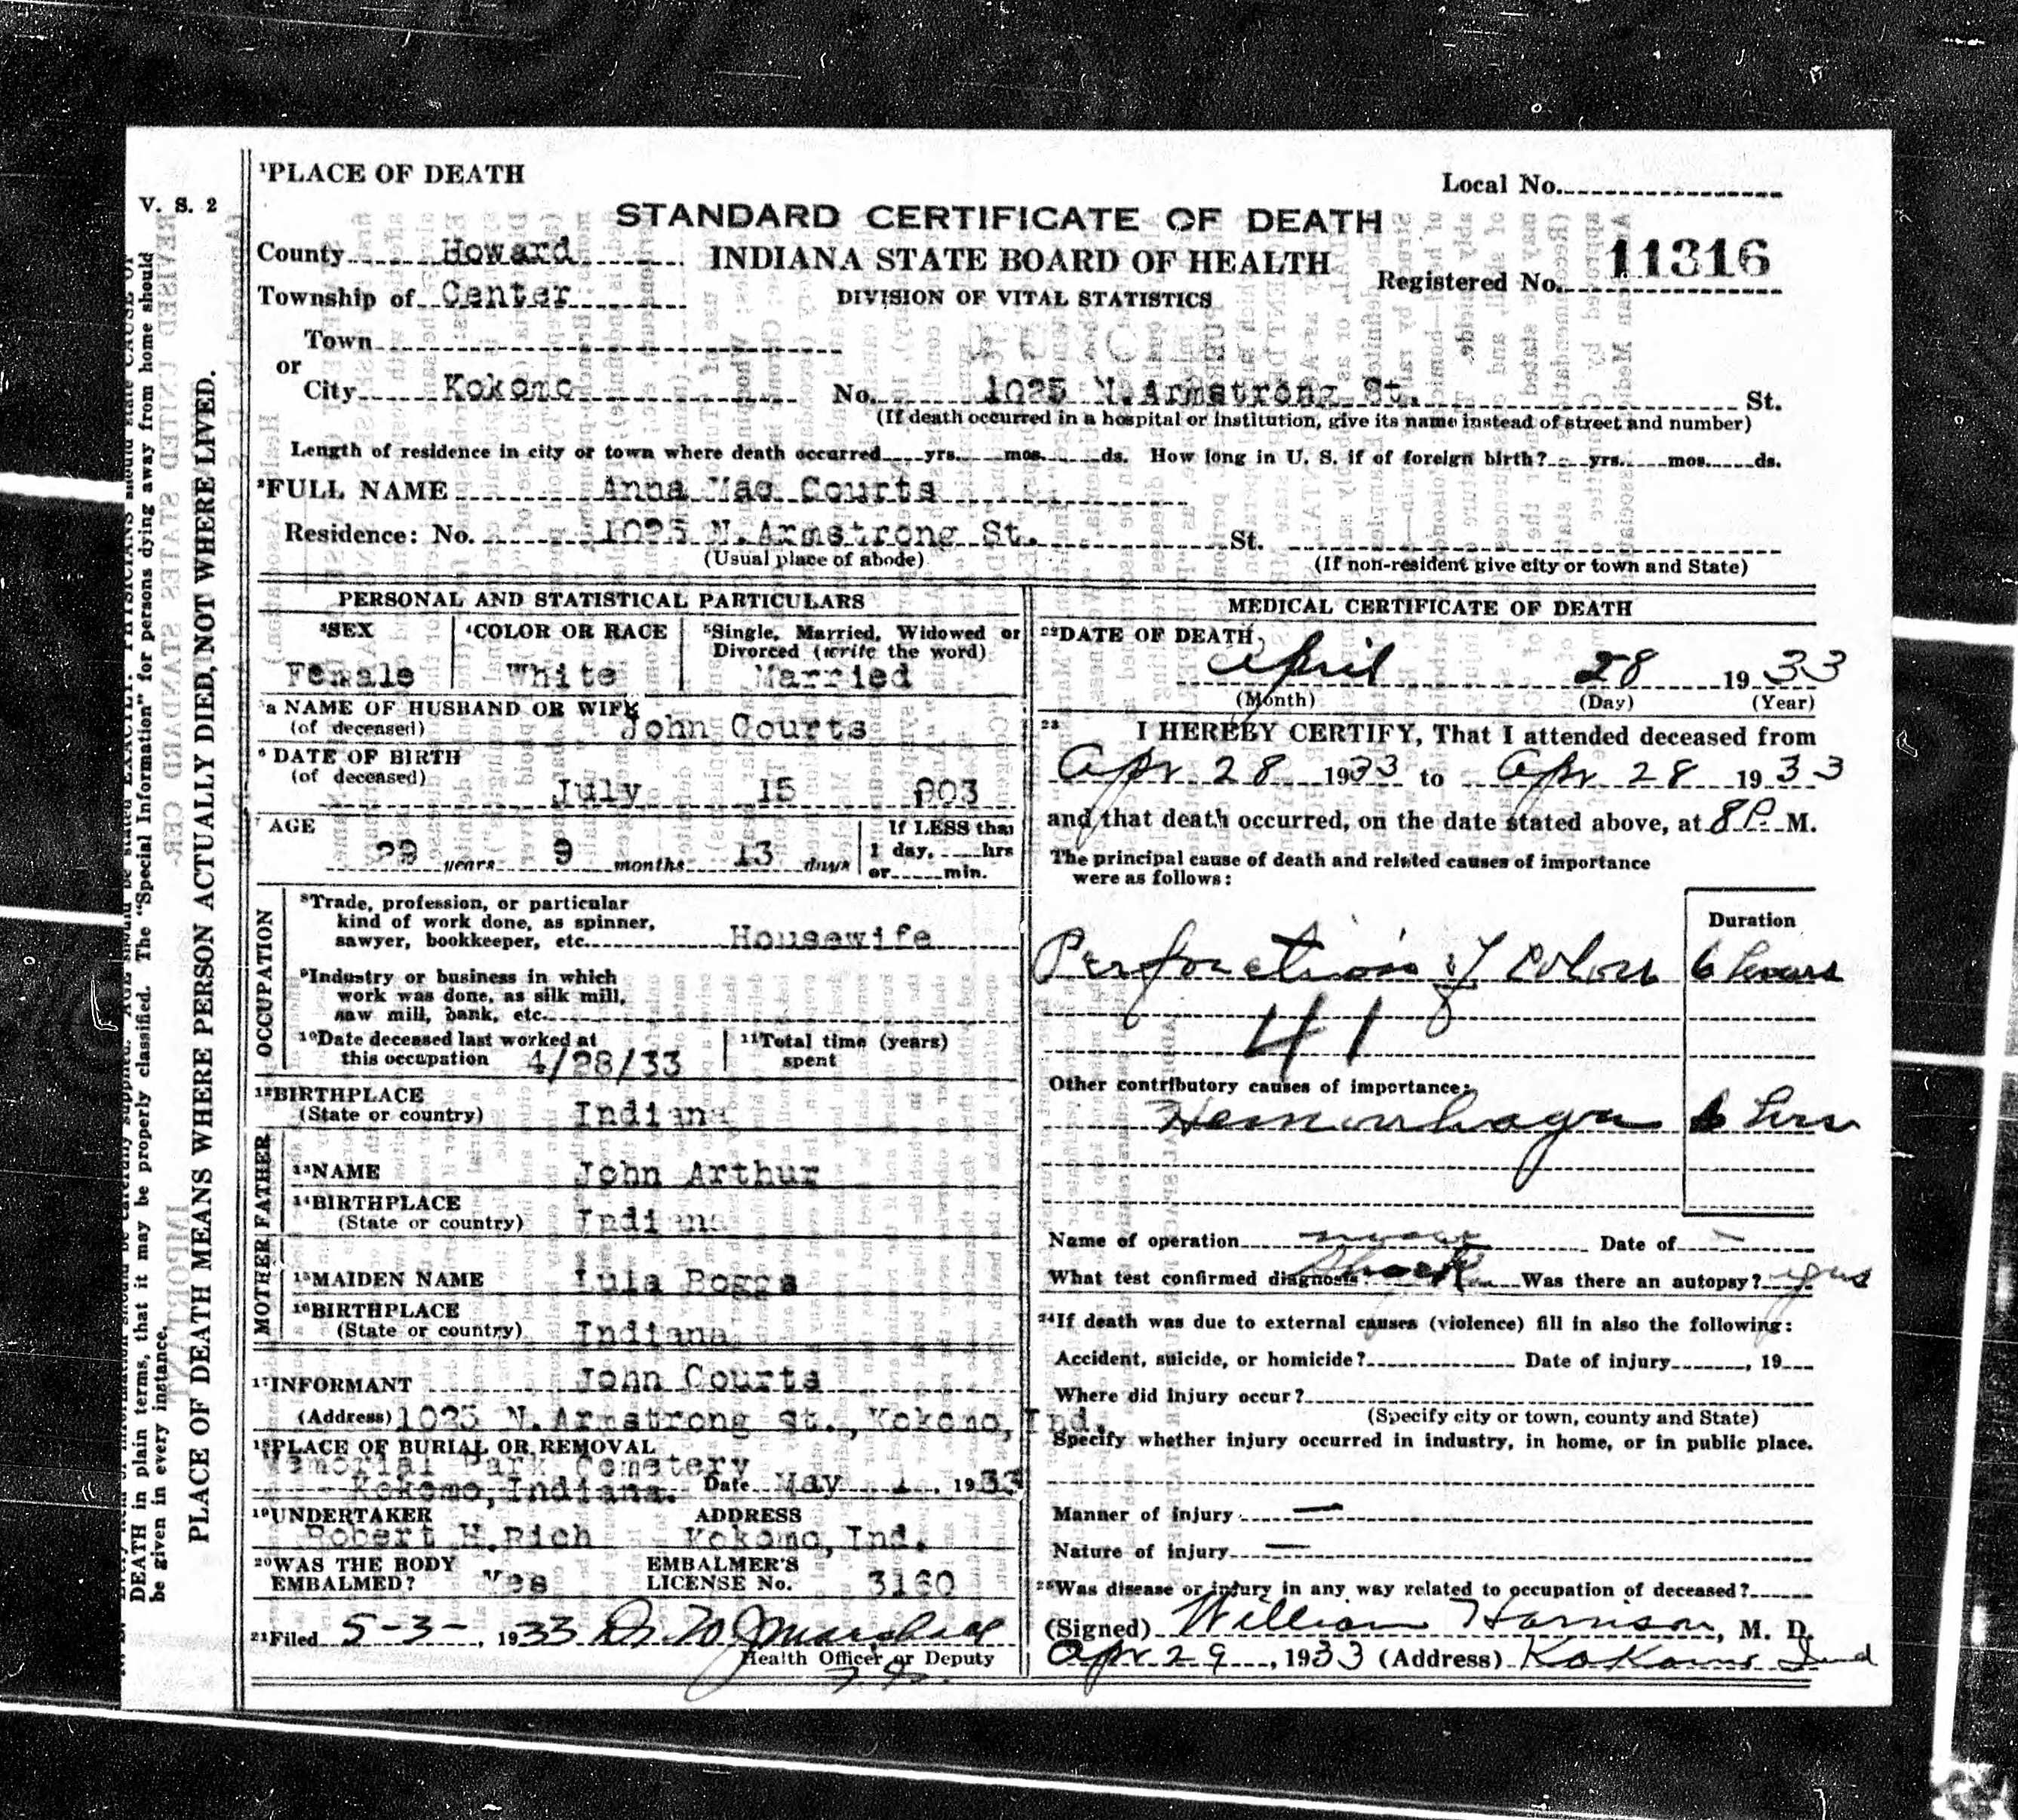 ¹PLACE OF DEATH
Local No.
V. S. 2
STANDARD CERTIFICATE OF DEATH
County Howard
INDIANA STATE BOARD OF HEALTH
Registered No. 11316
Township of Center
DIVISION OF VITAL STATISTICS
Town
or
City Kokomo No. 1025 N. Armstrong St. St.
(If death occurred in a hospital or institution, give its name instead of street and number)
Length of residence in city or town where death occurred yrs. mos. ds. How long in U. S. if of foreign birth? yrs. mos. ds.
²FULL NAME Anna Mae Courts
Residence: No. 1025 N. Armstrong St. St.
(Usual place of abode)
(If non-resident give city or town and State)
PERSONAL AND STATISTICAL PARTICULARS
³SEX
Female
⁴COLOR OR RACE
White
⁵Single, Married, Widowed or
Divorced (write the word)
Married
a NAME OF HUSBAND OR WIFE
(of deceased) John Courts
⁶ DATE OF BIRTH
(of deceased)
July 15 903
⁷ AGE
29 years 9 months 13 days
If LESS than
1 day, hrs
or min.
OCCUPATION
⁸Trade, profession, or particular
kind of work done, as spinner,
sawyer, bookkeeper, etc. Housewife
⁹Industry or business in which
work was done, as silk mill,
saw mill, bank, etc.
¹⁰Date deceased last worked at
this occupation 4/28/33
¹¹Total time (years)
spent
¹²BIRTHPLACE
(State or country) Indiana
FATHER
¹³NAME John Arthur
¹⁴BIRTHPLACE
(State or country) Indiana
MOTHER
¹⁵MAIDEN NAME Lula Boggs
¹⁶BIRTHPLACE
(State or country) Indiana
¹⁷INFORMANT John Courts
(Address) 1025 N. Armstrong St., Kokomo, Ind.
¹⁸PLACE OF BURIAL OR REMOVAL
Memorial Park Cemetery
Kokomo, Indiana. Date May 1, 1933
¹⁹UNDERTAKER ADDRESS
Robert H. Rich Kokomo, Ind.
²⁰WAS THE BODY
EMBALMED? Yes
EMBALMER'S
LICENSE No. 3160
²¹Filed 5-3-, 1933 Dr. W J Marshall
Health Officer or Deputy
MEDICAL CERTIFICATE OF DEATH
²²DATE OF DEATH
April 28 1933
(Month) (Day) (Year)
²³ I HEREBY CERTIFY, That I attended deceased from
Apr 28 1933 to Apr 28 1933
and that death occurred, on the date stated above, at 8 P. M.
The principal cause of death and related causes of importance
were as follows:
Duration
Perforation of Colon 6 hours
41
Other contributory causes of importance:
Hemorrhage 6 hrs
Name of operation none Date of
What test confirmed diagnosis? Was there an autopsy? yes
²⁴If death was due to external causes (violence) fill in also the following:
Accident, suicide, or homicide? Date of injury , 19
Where did injury occur?
(Specify city or town, county and State)
Specify whether injury occurred in industry, in home, or in public place.
Manner of injury —
Nature of injury —
²⁵Was disease or injury in any way related to occupation of deceased?
(Signed) William Harrison, M. D.
Apr 29, 1933 (Address) Kokomo Ind
PLACE OF DEATH MEANS WHERE PERSON ACTUALLY DIED, NOT WHERE LIVED.
DEATH in plain terms, that it may be properly classified. The "Special Information" for persons dying away from home should
be given in every instance.